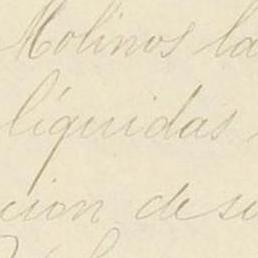 Molinos la
líquidas
cion de su